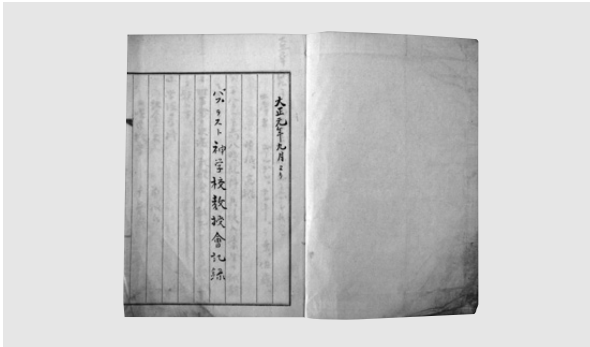 大正元年九月より
バプテスト神学校教授會記録